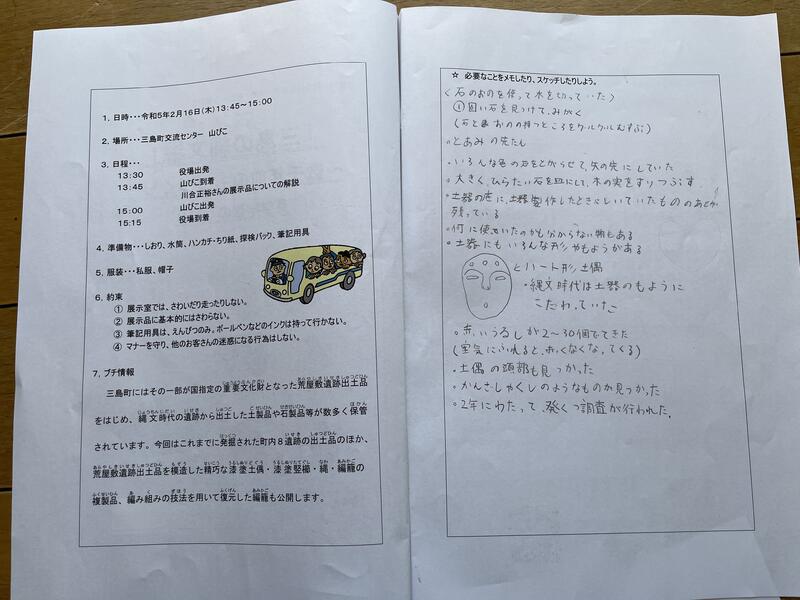 1. 日時・・・令和5年2月16日(木)13:45~15:00
2. 場所・・・三島町交流センター 山びこ
3. 日程・・・
13:30 役場出発
13:45 山びこ到着
川合正裕さんの展示品についての解説
15:00 山びこ出発
15:15 役場到着
4. 準備物・・・しおり、水筒、ハンカチ・ちり紙、探検バック、筆記用具
5. 服装・・・私服、帽子
6. 約束
① 展示室では、さわいだり走ったりしない。
② 展示品に基本的にはさわらない。
③ 筆記用具は、えんぴつのみ。ボールペンなどのインクは持って行かない。
④ マナーを守り、他のお客さんの迷惑になる行為はしない。
7. プチ情報
三島町にはその一部が国指定の重要文化財となった荒屋敷遺跡出土品
をはじめ、縄文時代の遺跡から出土した土製品や石製品等が数多く保管
されています。今回はこれまでに発掘された町内8遺跡の出土品のほか、
荒屋敷遺跡出土品を模造した精巧な漆塗土偶・漆塗竪櫛・縄・編籠の
複製品、編み組みの技法を用いて復元した編籠も公開します。
☆ 必要なことをメモしたり、スケッチしたりしよう。
〈石のおのを使って木を切っていた〉
①固い石を見つけて、みがく
(石とおのの持つところをグルグルむすぶ)
・とあみの先たん
・いろんな色の石をとがらせて、矢の先にしていた
・大きく、ひらたい石を皿にして、木の実をすりつぶす
・土器の底に、土器製作したときにしいていたもののあとが
残っている
・何に使せいたのかも分からない物もある
・土器にもいろんな形やもようがある
とハート形土偶
・縄文時代は土器のもように
こだわっていた
・赤いうるしが2~30個でてきた
(空気にふれると、赤くなくなってくる)
・土偶の頭部も見つかった
・かんざしやくしのようなものが見つかった
・2年にわたって、発くつ調査が行われた。